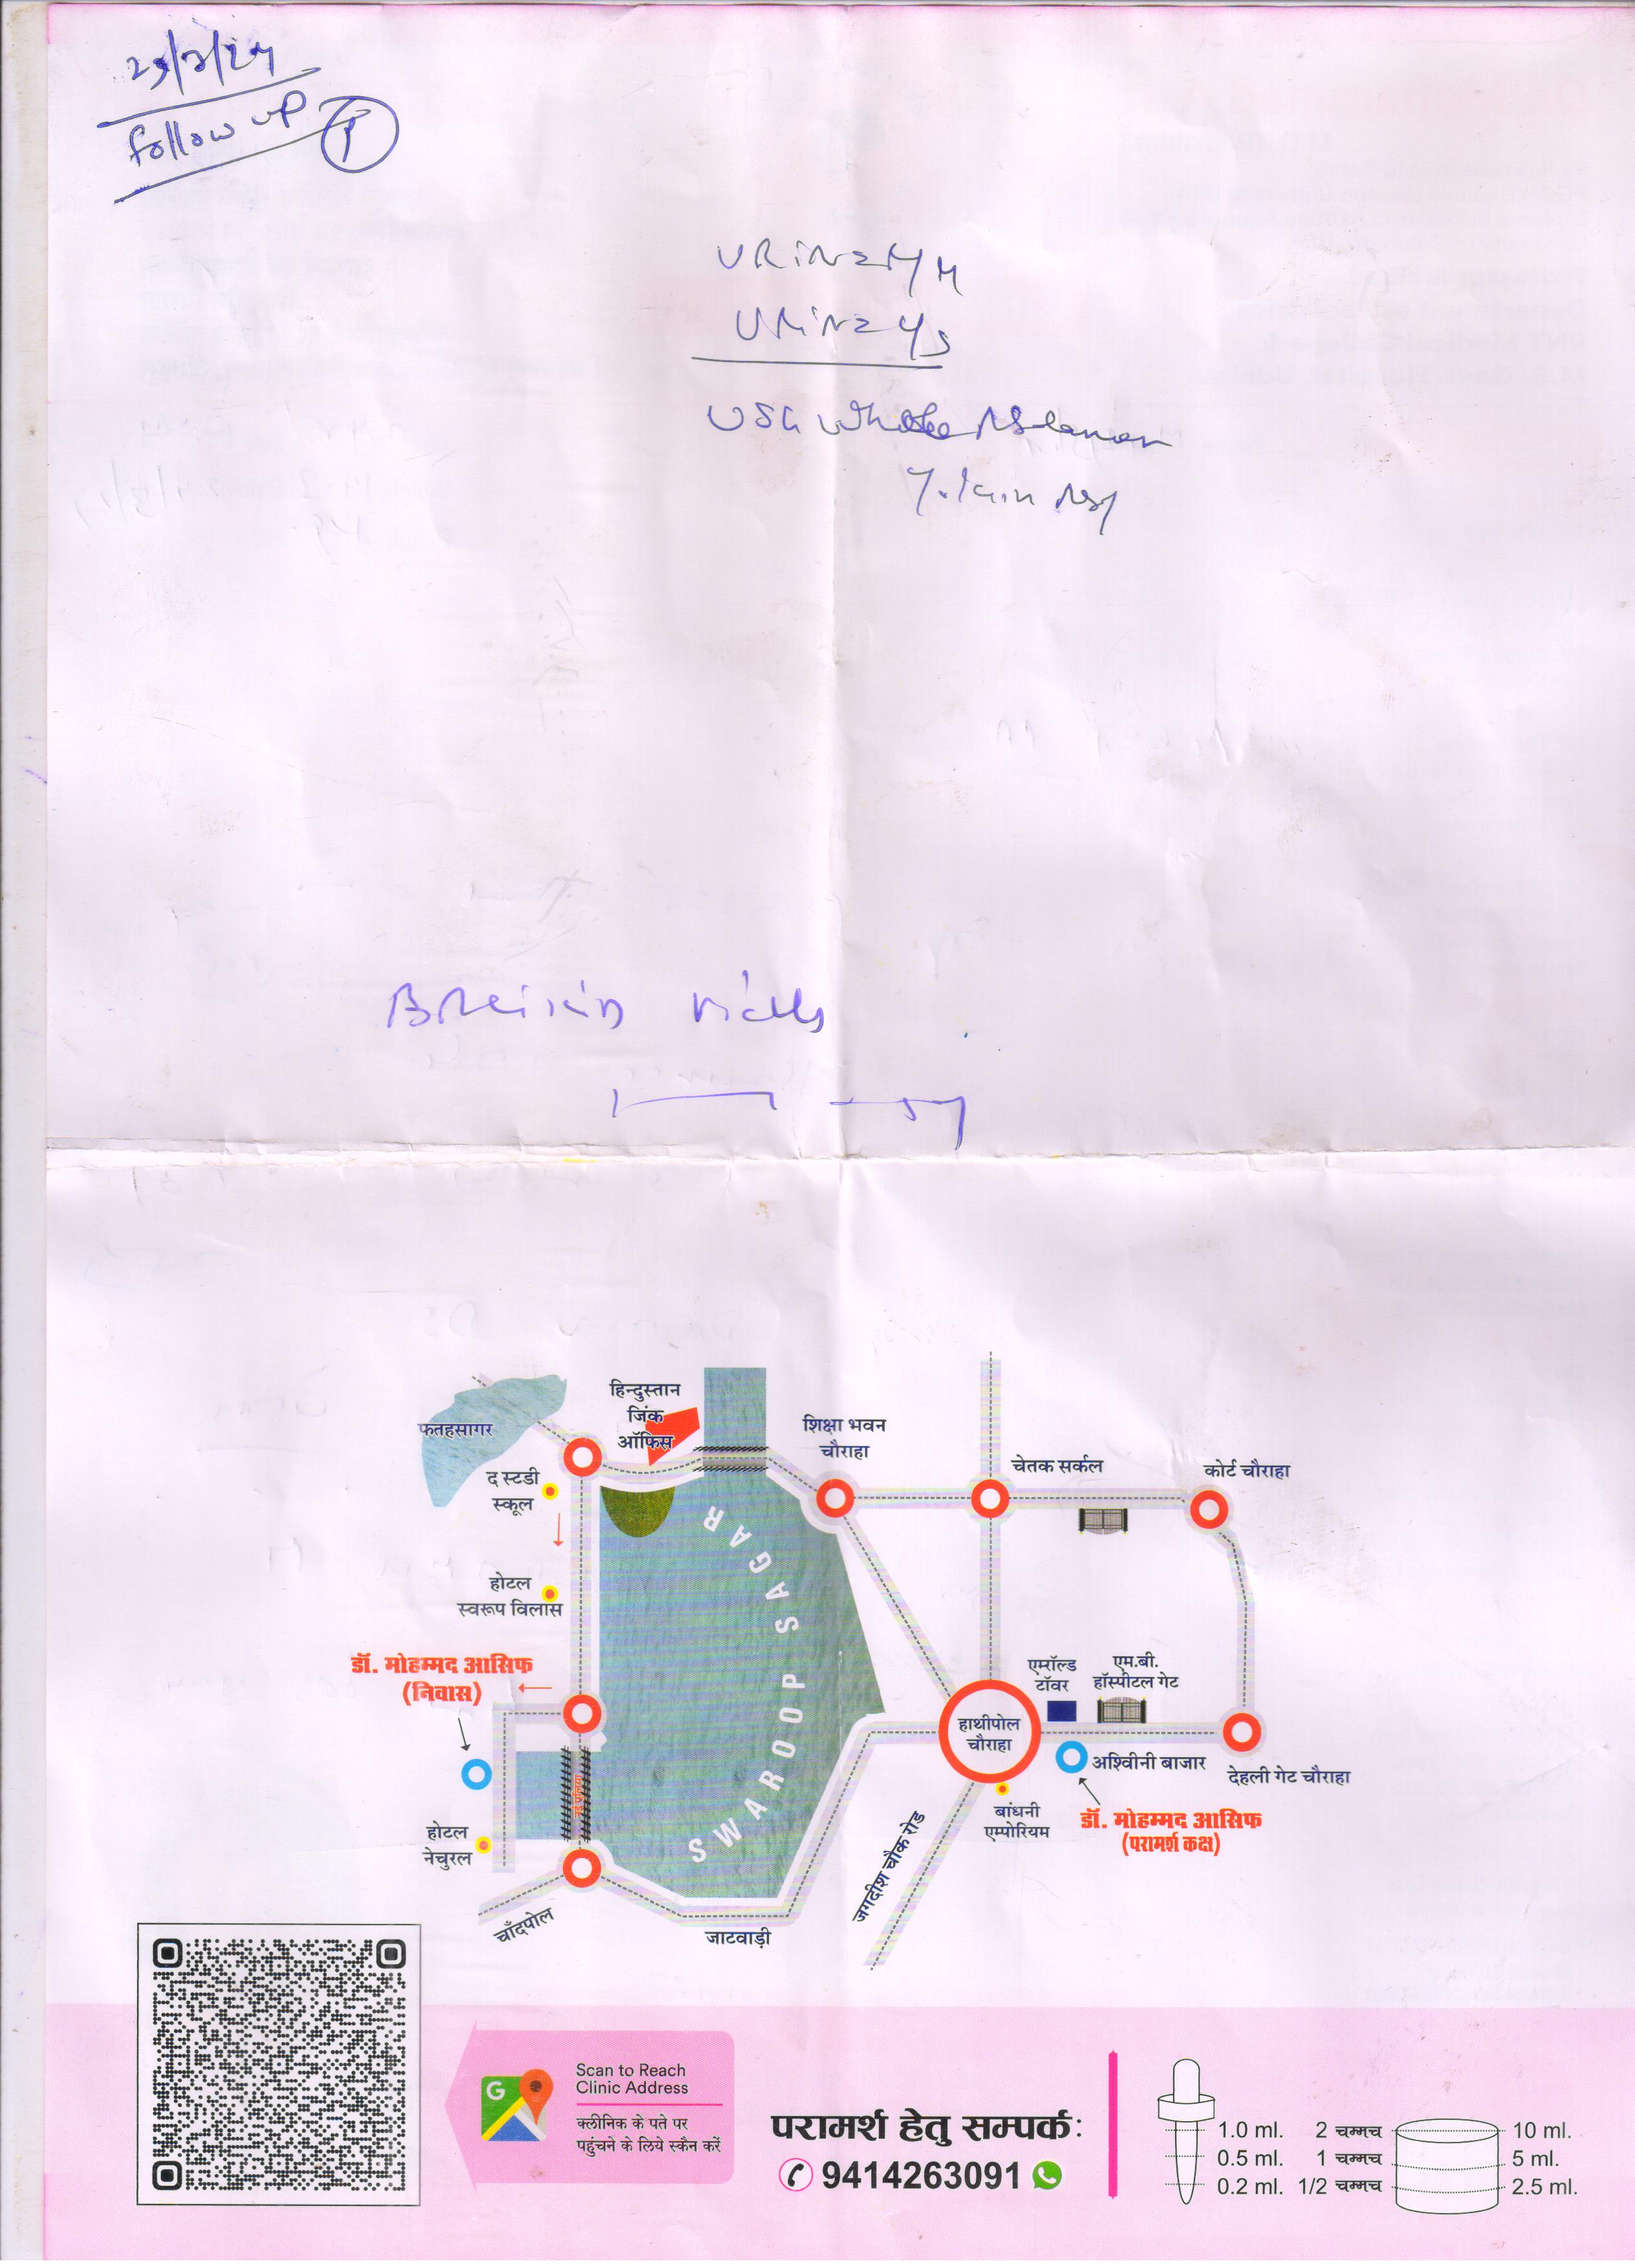 Follow up
URINE
URINE
USG Whole
फतहसागर
हिन्दुस्तान
जिंक
ऑफिस
शिक्षा भवन
चौराहा
चेतक सर्कल
कोर्ट चौराहा
द स्टडी
स्कूल
होटल
स्वरूप विलास
SWAROOP SAGAR
डॉ. मोहम्मद आसिफ
(निवास)
एमरॉल्ड
टॉवर
एम.बी.
हॉस्पीटल गेट
हाथीपोल
चौराहा
अश्विीनी बाजार
देहली गेट चौराहा
बांधनी
एम्पोरियम
डॉ. मोहम्मद आसिफ
(परामर्श कक्ष)
होटल
नेचुरल
चाँदपोल
जाटवाड़ी
जगदीश चौक रोड
Scan to Reach
Clinic Address
क्लीनिक के पते पर
पहुंचने के लिये स्कैन करें
परामर्श हेतु सम्पर्क:
9414263091
1.0 ml. 2 चम्मच 10 ml.
0.5 ml. 1 चम्मच 5 ml.
0.2 ml. 1/2 चम्मच 2.5 ml.